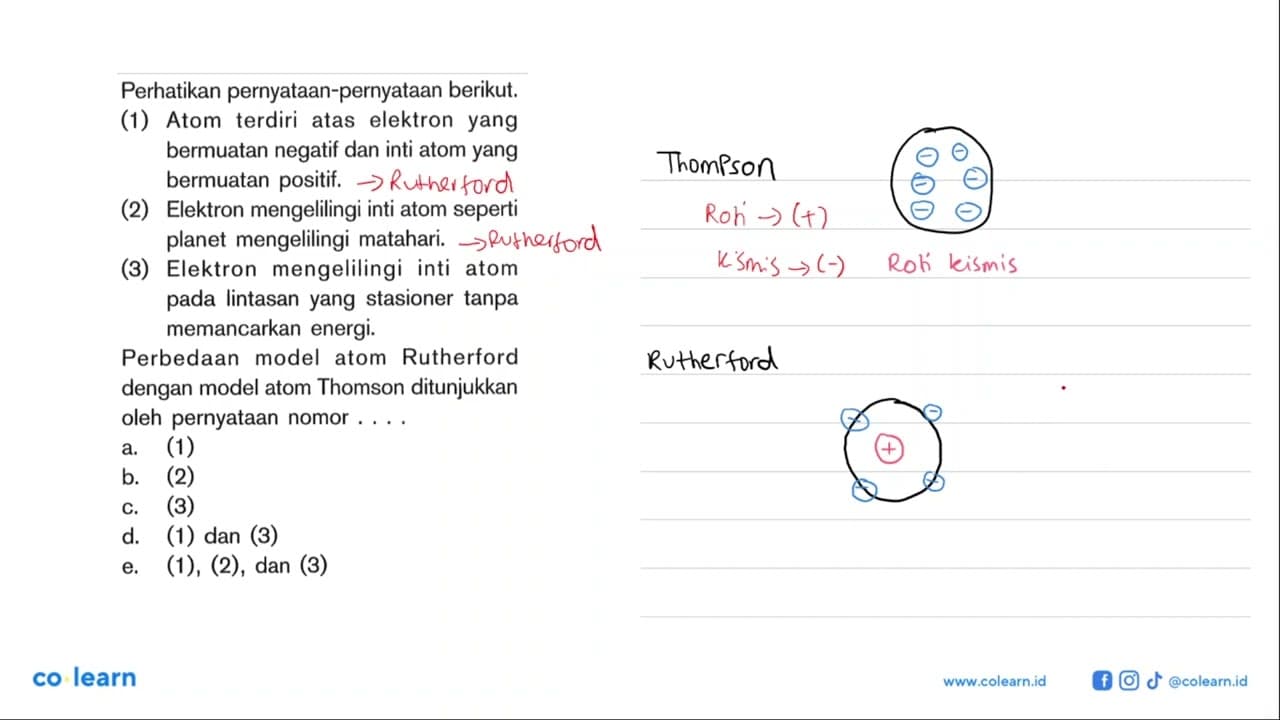 Perhatikan pernyataan-pernyataan berikut.
(1) Atom terdiri atas elektron yang
bermuatan negatif dan inti atom yang
bermuatan positif. → Rutherford
(2) Elektron mengelilingi inti atom seperti
planet mengelilingi matahari. → Rutherford
(3) Elektron mengelilingi inti atom
pada lintasan yang stasioner tanpa
memancarkan energi.
Perbedaan model atom Rutherford
dengan model atom Thomson ditunjukkan
oleh pernyataan nomor . . . .
a. (1)
b. (2)
c. (3)
d. (1) dan (3)
e. (1), (2), dan (3)
Thompson
Roti → (+)
kismis → (-)
Roti kismis
Rutherford
+
co learn
www.colearn.id
@colearn.id